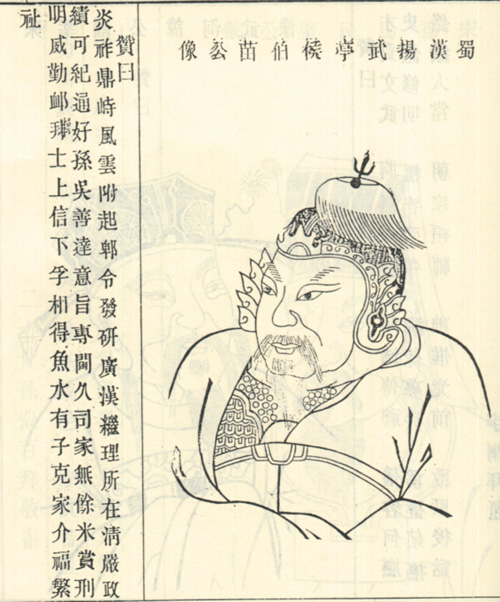 蜀漢揚武亭侯伯苗公像
贊曰
炎祚鼎峙風雲附起郫令發研廣漢繼理所在清嚴政
績可紀通好孫吳善達意旨專閫久司家無餘米賞刑
明威勤卹士上信下孚相得魚水有子克家介福繄
祉